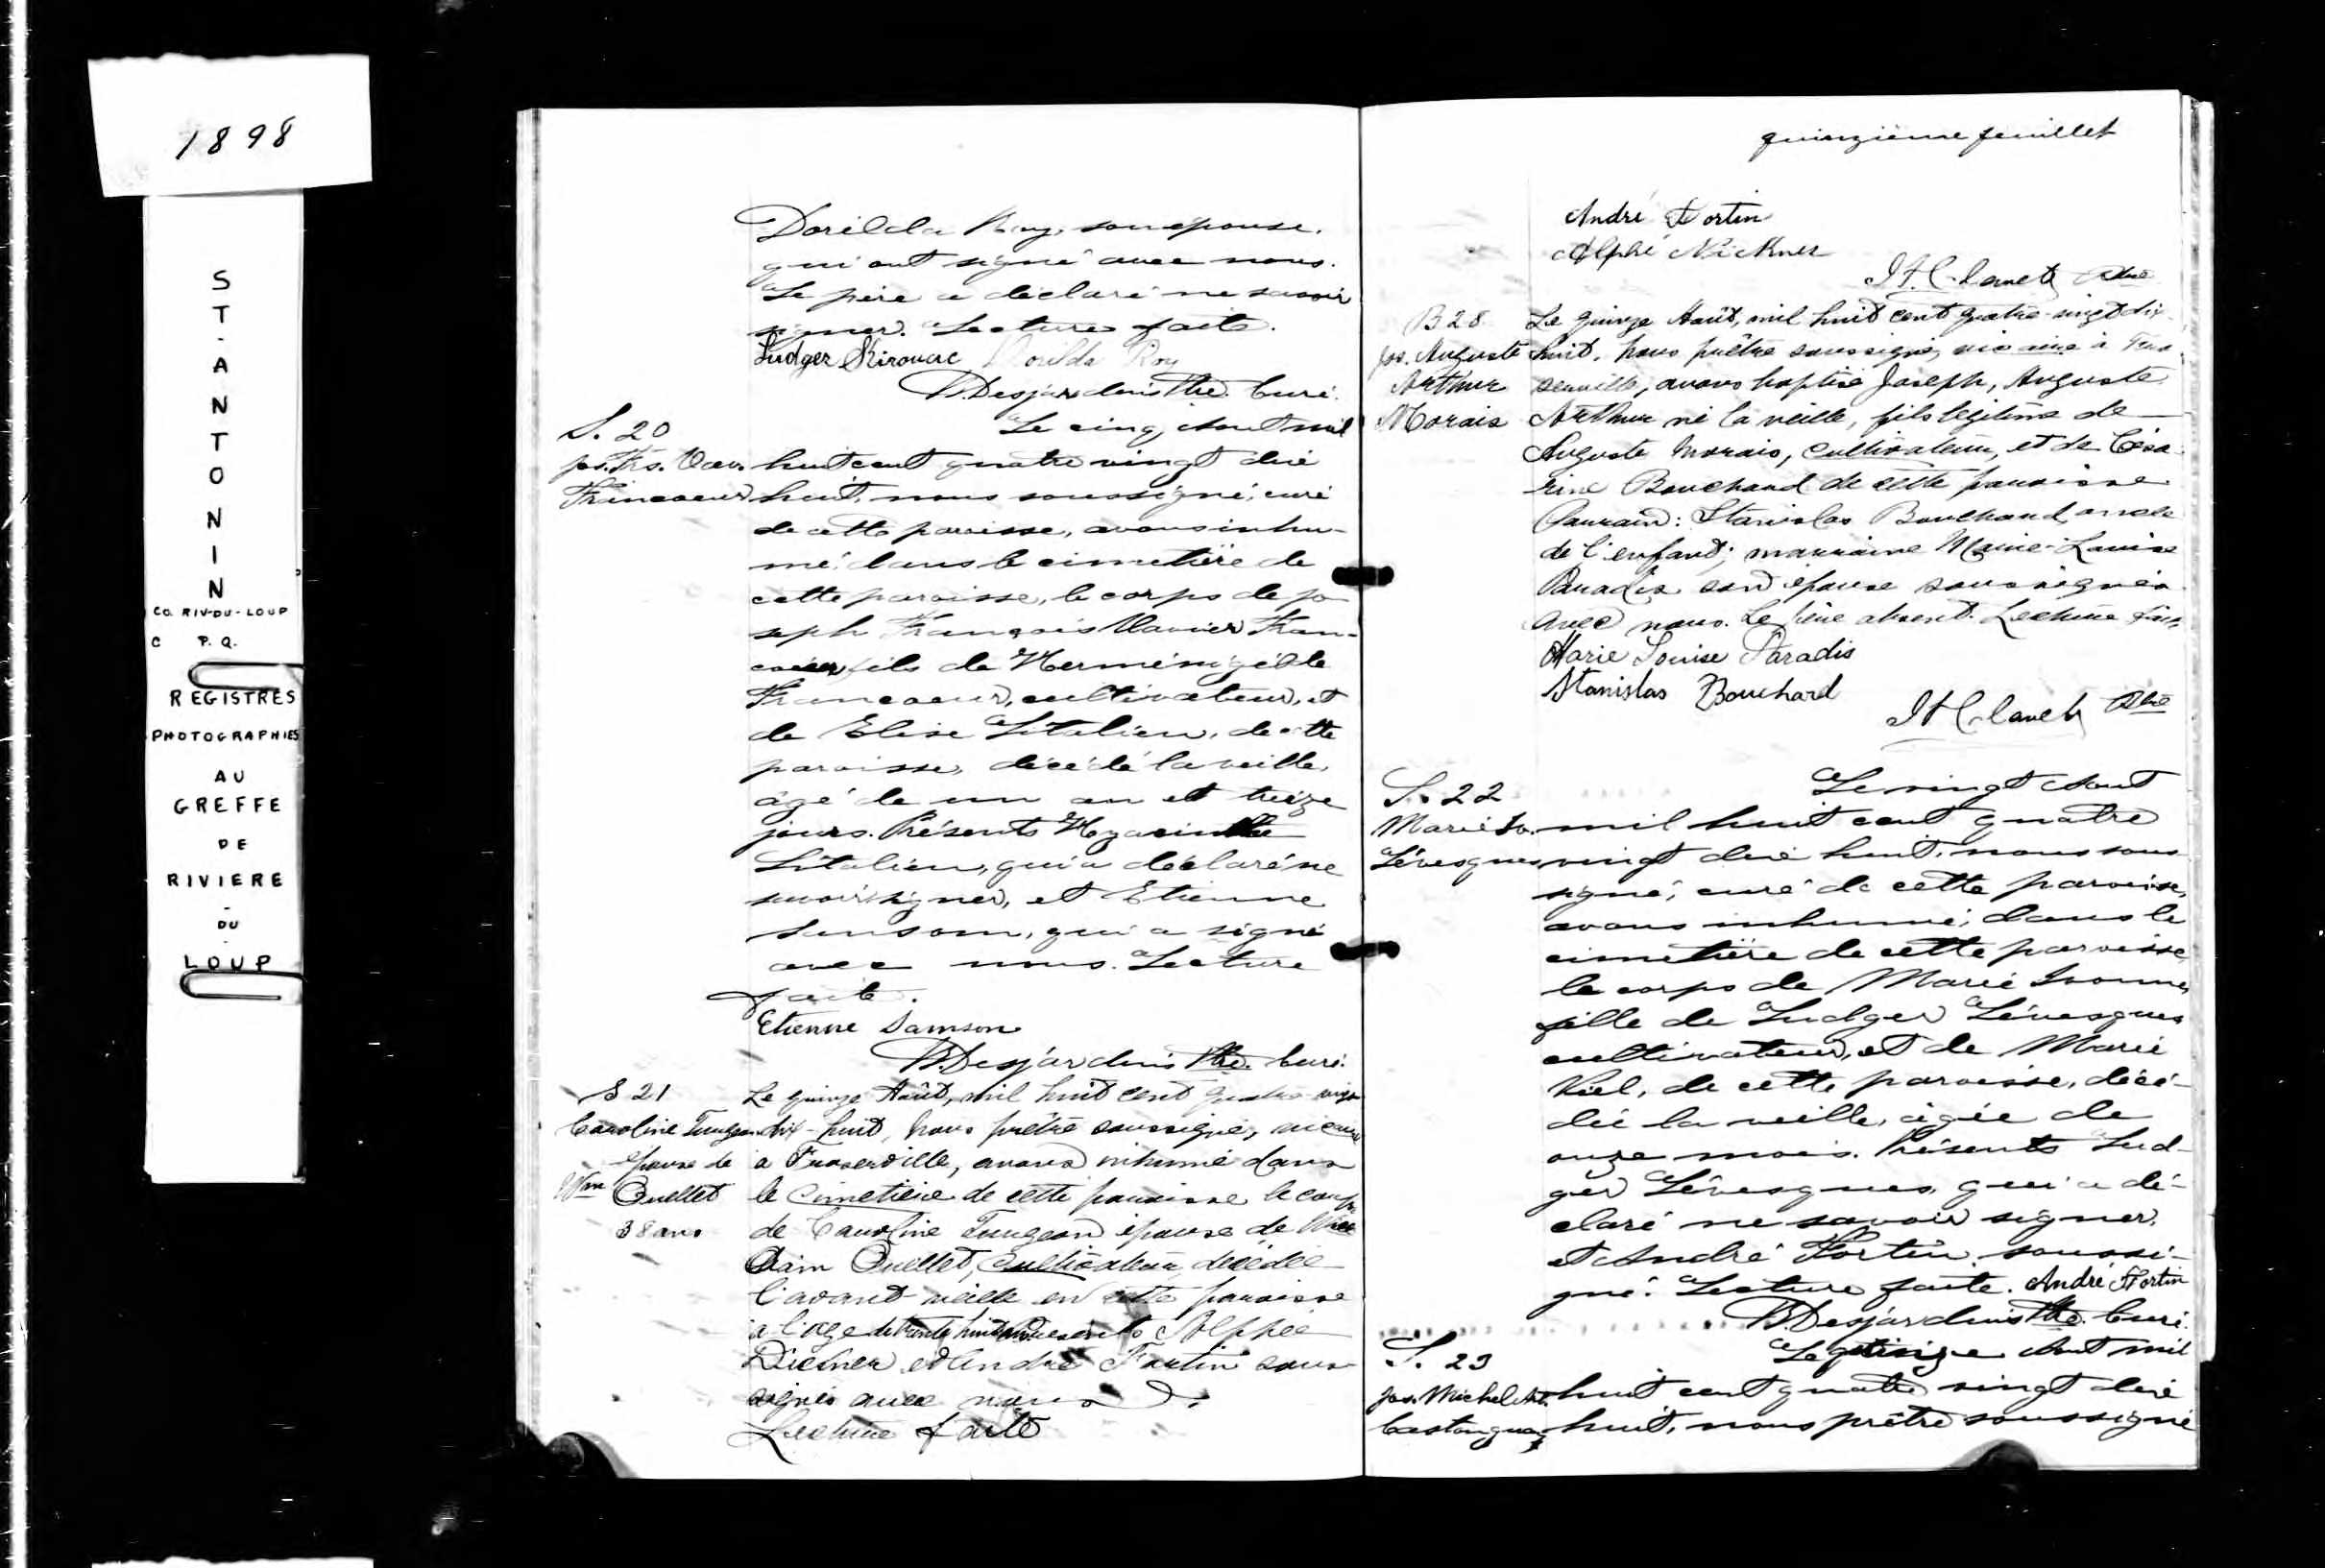 1898
ST-ANTONIN
CO. RIV-DU-LOUP
C P.Q.
REGISTRES
PHOTOGRAPHIES
AU
GREFFE
DE
RIVIERE
-
DU
-
LOUP
Dorilda Roy, son épouse,
qui ont signé avec nous.
Le père a déclaré ne savoir
signer. Lecture faite.
Ludger Kirouac Dorilda Roy
Desjardins Ptre. Curé.
S. 20
Jos. Frs. Xav.
Francoeur
Le cinq Aout mil
huit cent quatre vingt dix
huit, nous soussigné, curé
de cette paroisse, avons inhu-
mé, dans le cimetière de
cette paroisse, le corps de Jo
seph François Xavier Fran-
coeur fils de Herménégilde
Francoeur, cultivateur, et
de Elise Litalien, de cette
paroisse, décédé la veille,
âgé de un an et treize
jours. Présents Hyacinthe
Litalien, qui a déclaré ne
savoir signer, et Etienne
Samson, qui a signé
avec nous. Lecture
faite.
Etienne Samson
Desjardins Ptre. Curé.
S 21
Caroline Turgeon
épouse de
Wm Ouellet
38 ans
Le quinze Août, mil huit cent quatre-vingt
dix-huit, nous prêtre soussigné, vicaire
à Fraserville, avons inhumé dans
le cimetière de cette paroisse le corps
de Caroline Turgeon épouse de
Ouellet, cultivateur, décédée
l'avant-veille en cette paroisse
à l'age de trente huit ans Présents Alphée
et André Fortin sous-
signés avec nous
Lecture faite
quinzième feuillet
André Fortin
Alphé
Ptre
B 28
Jos. Auguste
Arthur
Morais
Le quinze Août, mil huit cent quatre-vingt dix-
huit, nous prêtre soussigné, vicaire à Fra
serville, avons baptisé Joseph, Auguste
Arthur né la veille, fils légitime de
Auguste Morais, cultivateur, et de Césa
rine Bouchard de cette paroisse
Parrain: Stanislas Bouchard, oncle
de l'enfant; marraine Marie-Louise
Paradis son épouse soussignés
avec nous. Le père absent. Lecture faite
Marie Louise Paradis
Stanislas Bouchard
Ptre
S. 22
Marie Iv.
Lévesques
Le vingt Aout
mil huit cent quatre
vingt dix huit, nous sous
signé, curé de cette paroisse,
avons inhumé, dans le
cimetière de cette paroisse,
le corps de Marie Ivonne,
fille de Ludger Lévesques
cultivateur, et de Marie
Viel, de cette paroisse, décé-
dée la veille, âgée de
onze mois. Présents Lud-
ger Lévesques, qui a dé-
claré ne savoir signer,
et André Fortin, soussi-
gné. Lecture faite. André Fortin
Desjardins Ptre. Curé.
S. 23
Jos. Michel
Castonguay
Le Aout mil
huit cent quatre vingt dix
huit, nous prêtre soussigné